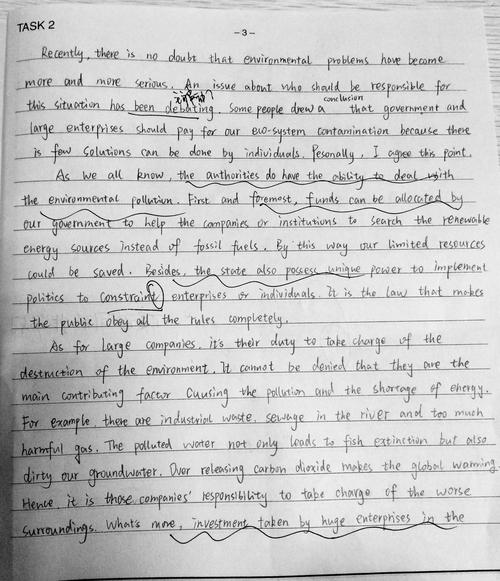 TASK 2
-3-
Recently, there is no doubt that environmental problems have become
more and more serious. An issue about who should be responsible for
this situation has been debating. Some people drew a conclusion that government and
large enterprises should pay for our eco-system contamination because there
is few solutions can be done by individuals. Pesonally, I agree this point.
As we all know, the authorities do have the ability to deal with
the environmental pollution. First and foremest, funds can be allocated by
our government to help the companies or institutions to search the renewable
energy sources instead of fossil fuels. By this way our limited resources
could be saved. Besides, the state also possess unique power to implement
politics to constraint enterprises or individuals. It is the law that makes
the public obey all the rules completely.
As for large companies, it's their duty to take charge of the
destruction of the environment. It cannot be denied that they are the
main contributing factor cuusing the pollution and the shortage of energy.
For example, there are industrial waste, sewage in the river and too much
harmful gas. The polluted water not only leads to fish extinction but also
dirty our groundwater. Over releasing carbon dioxide makes the global warming.
Hence, it is those companies' responsibility to take charge of the worse
surroundings. What's more, investment taken by huge enterprises in the